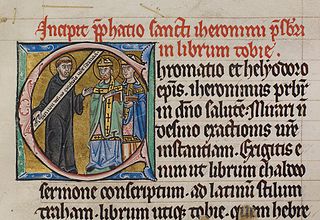 Incipit p̄phatio sancti iheronimi p̄sb̄ri
in librum tobie.
Chromatio et helyodoro
ep̄is. iheronimus prb̄r
in dn̄o salutē. Mirari n̄
desino exactionis ur̄e
instantiam. Exigitis e
nim ut librum chaldeo
sermone conscriptum. ad latinū stilum
traham. librum utiq; tobie. quem hebre